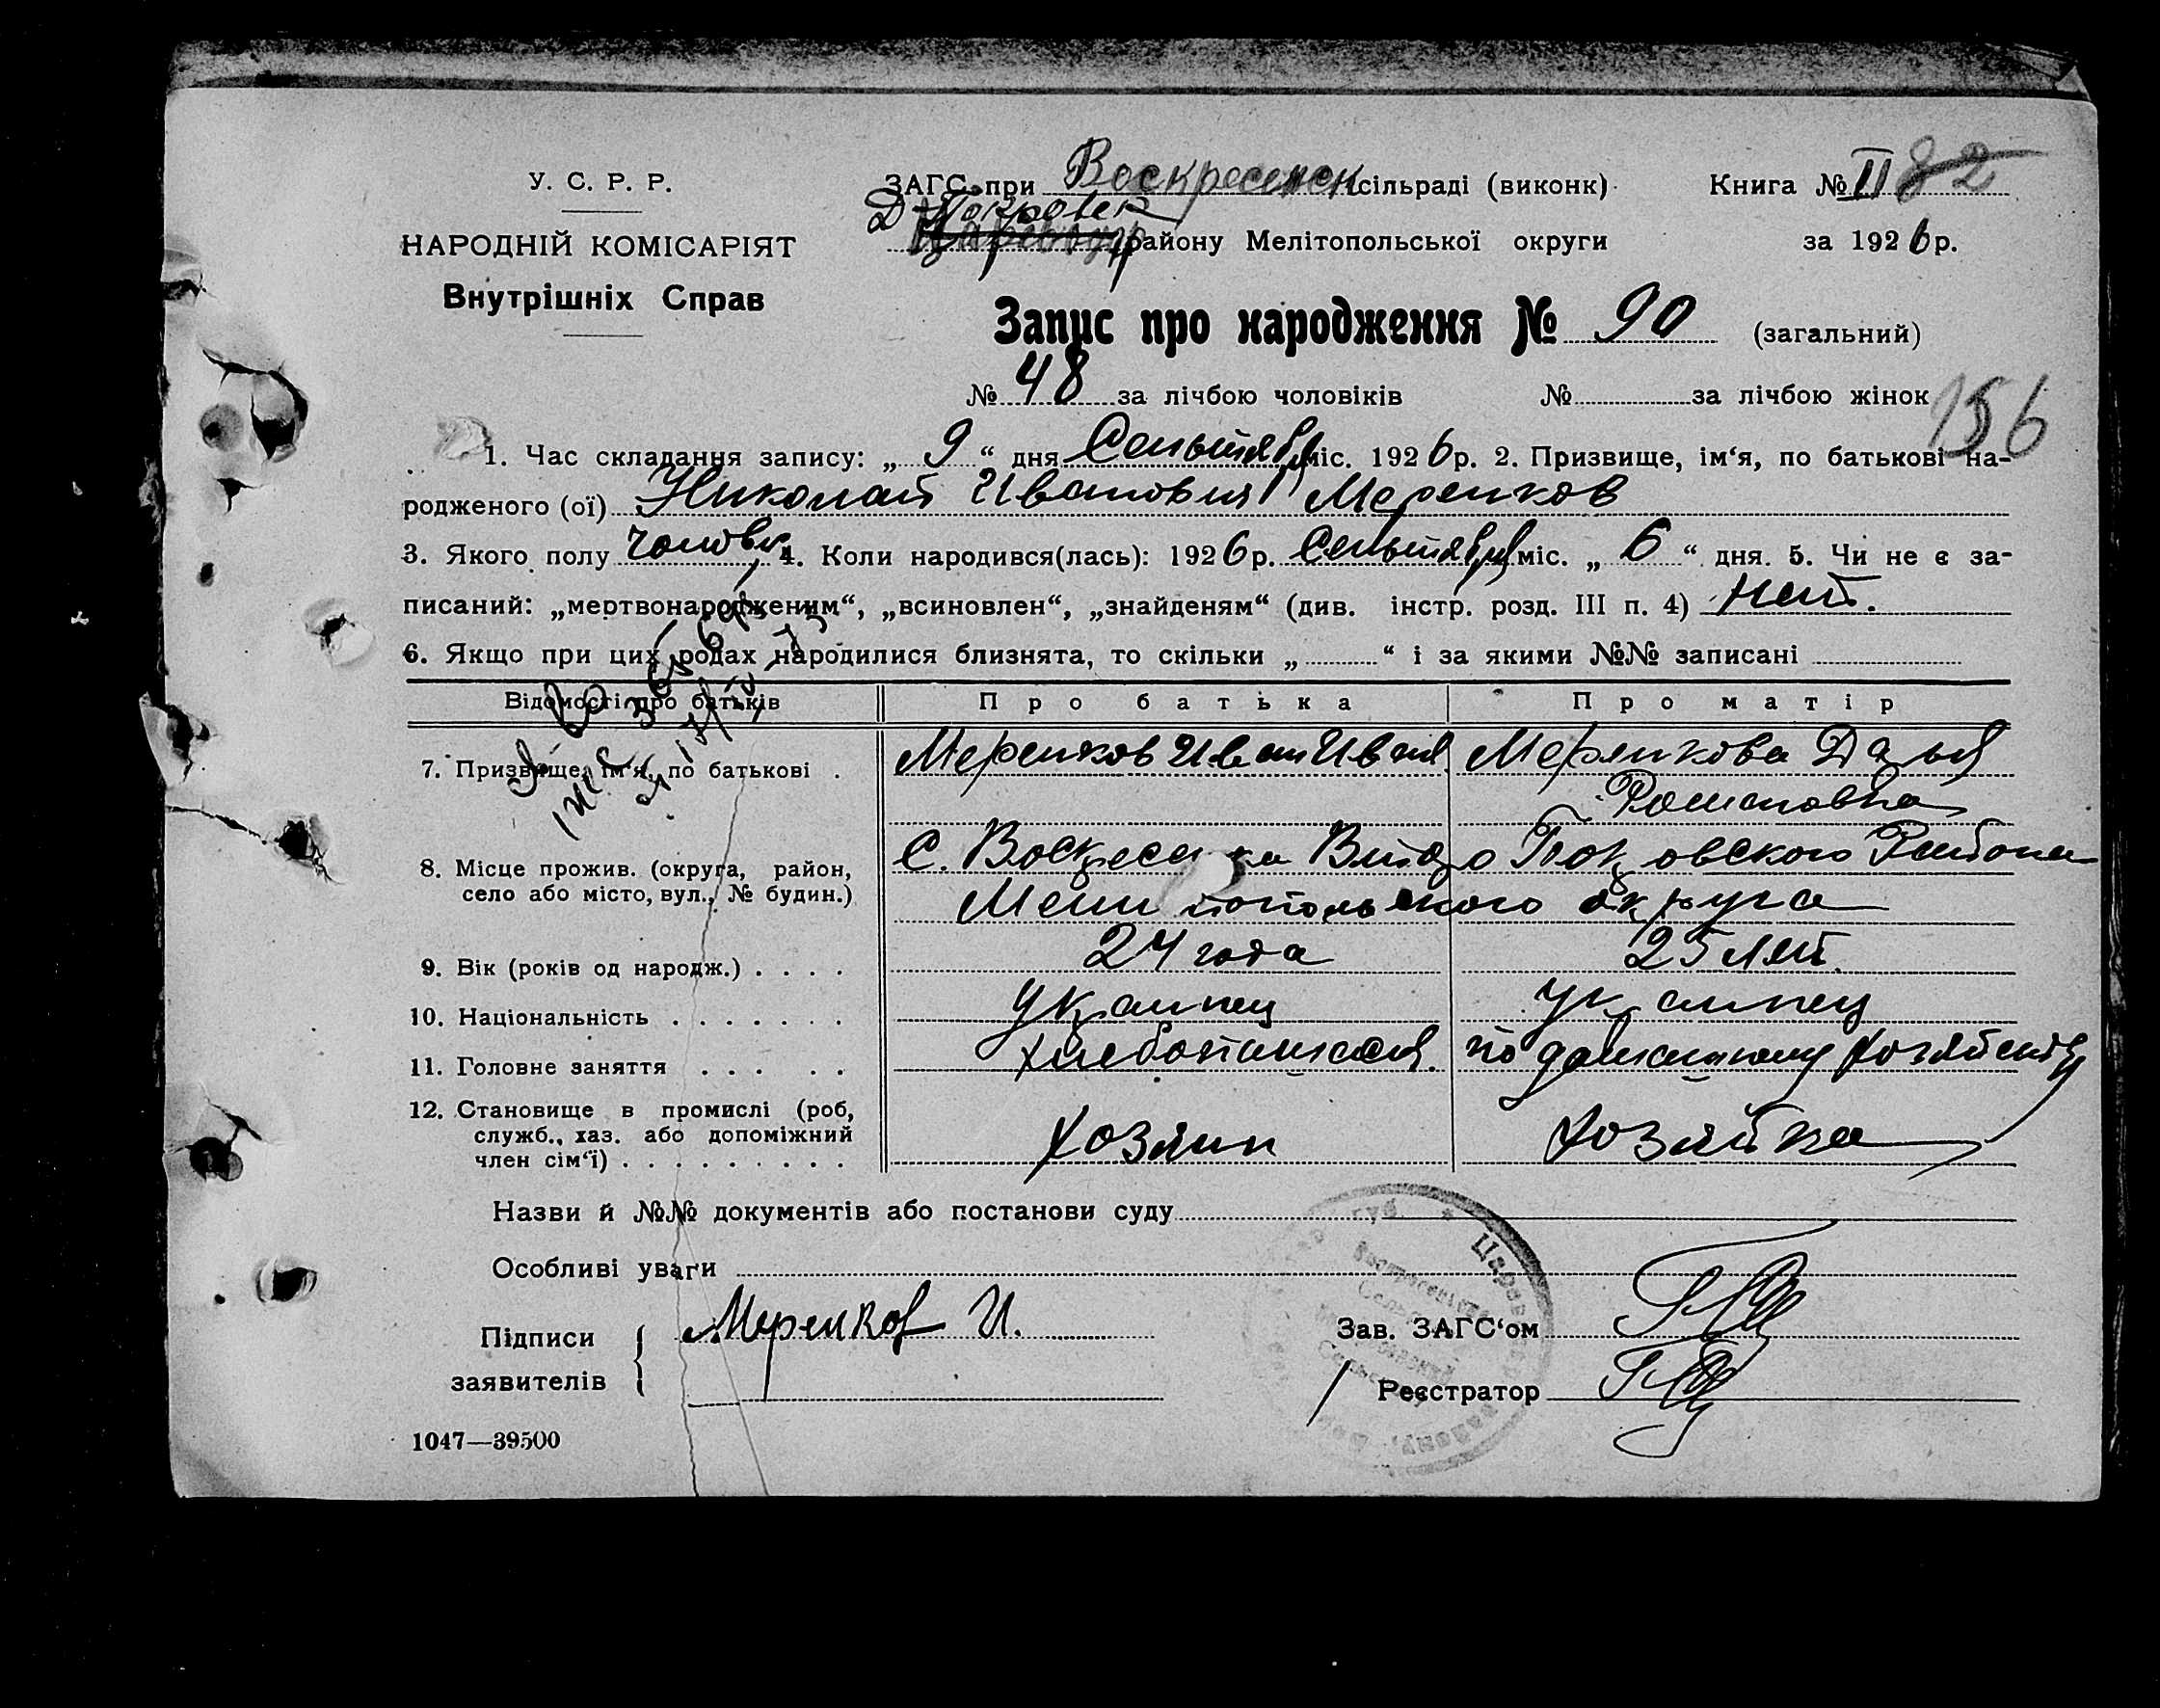 У. С. Р. Р.
НАРОДНІЙ КОМІСАРІЯТ
Внутрішніх Справ
ЗАГС при Воскресенск сільраді (виконк)
Книга № II 82
Д-Покровск
Цареводар району Мелітопольської округи
за 1926 р.
Запис про народження № 90 (загальний)
№ 48 за лічбою чоловіків № за лічбою жінок
156
1. Час складання запису: „ 9 “ дня Сентября міс. 1926 р. 2. Призвище, ім‘я, по батькові на-
родженого (ої) Николай Иванович Меренков
3. Якого полу 4. Коли народився(лась): 1926 р. Сентября міс. „ 6 “ дня. 5. Чи не є за-
писаний: „мертвонародженим“, „всиновлен“, „знайденям“ (див. інстр. розд. III п. 4) нет.
6. Якщо при цих родах народилися близнята, то скільки „ “ і за якими №№ записані
Відомості про батьків Про батька Про матір
7. Призвище, ім‘я, по батькові . Меренков Иван Иван. Меренкова Дарья
Романовна
8. Місце прожив. (округа, район, село або місто, вул., № будин.) С. Воскресенка Покровского Района
Мелитопольского округа
9. Вік (років од народж.) . . . . 24 года 25 лет.
10. Національність . . . . . . . Украинец Украинец
11. Головне заняття . . . . . хлебопашест. по домашнему хозяйству
12. Становище в промислі (роб, служб., хаз. або допоміжний член сім‘ї) . . . . . . . . . Хозяин Хозяйка
Назви й №№ документів або постанови суду
Особливі уваги
Підписи заявителів Меренков И.
Зав. ЗАГС‘ом
Реєстратор
1047—39500